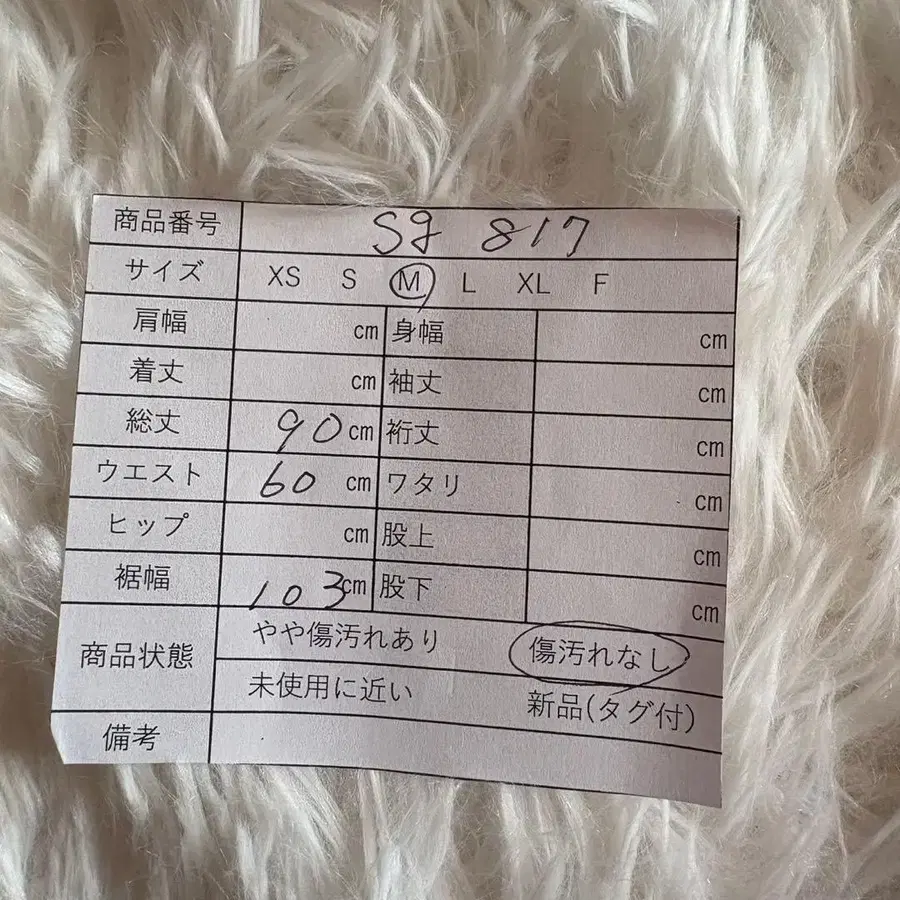 商品番号 Sg 817
サイズ XS S M L XL F
肩幅 cm 身幅 cm
着丈 cm 袖丈 cm
総丈 90 cm 裄丈 cm
ウエスト 60 cm ワタリ cm
ヒップ cm 股上 cm
裾幅 103 cm 股下 cm
商品状態 やや傷汚れあり 傷汚れなし
未使用に近い 新品(タグ付)
備考